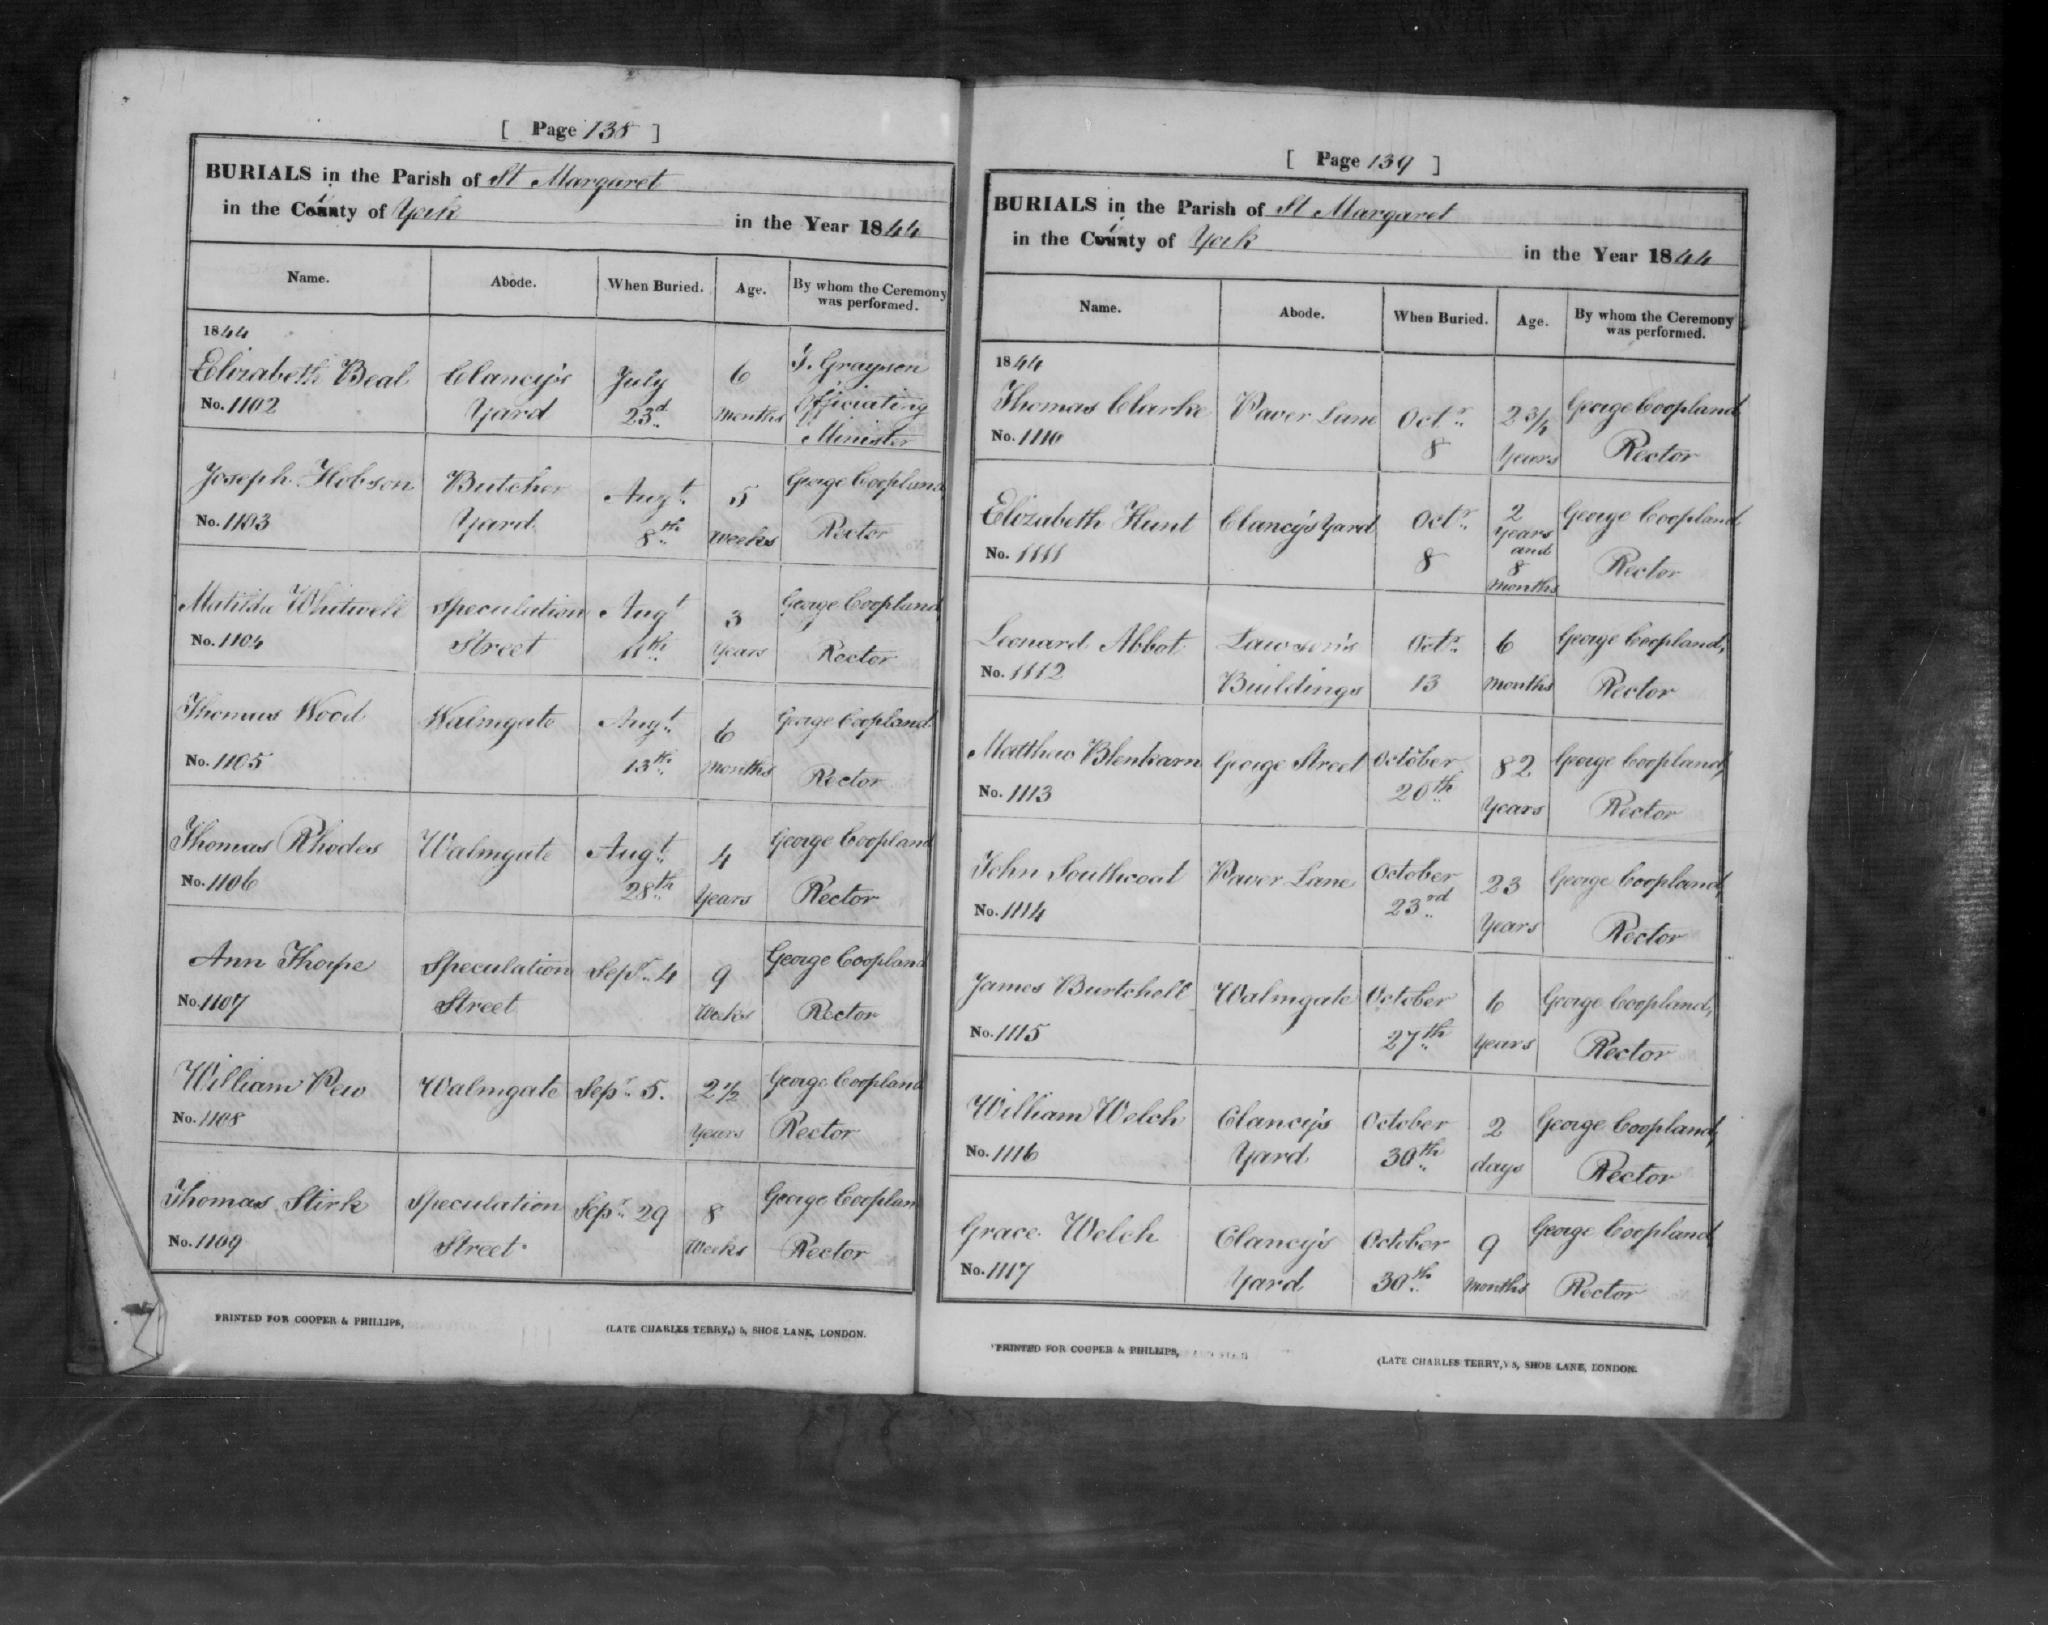 [ Page 138 ]
BURIALS in the Parish of St Margaret
in the City of York in the Year 1844
Name. Abode. When Buried. Age. By whom the Ceremony was performed.
1844
Elizabeth Beal Clancy's July 6 J. Grayson
No. 1102 Yard 23d months Officiating
Minister
Joseph Hobson Butcher Augt 5 George Coopland,
No. 1103 Yard 8th Weeks Rector
Matilda Whitwell Speculation Augt 3 George Coopland,
No. 1104 Street 11th Years Rector
Thomas Wood Walmgate Augt 6 George Coopland
No. 1105 13th Months Rector
Thomas Rhodes Walmgate Augt 4 George Coopland
No. 1106 28th Years Rector
Ann Thorpe Speculation Sepr 4 9 George Coopland
No. 1107 Street Weeks Rector
William Pew Walmgate Sepr 5. 2 1/2 George Coopland
No. 1108 Years Rector
Thomas Stirk Speculation Sepr 29 8 George Cooplan
No. 1109 Street Weeks Rector
PRINTED FOR COOPER & PHILLIPS, (LATE CHARLES TERRY,) 5, SHOE LANE, LONDON.
[ Page 139 ]
BURIALS in the Parish of St Margaret
in the City of York in the Year 1844
Name. Abode. When Buried. Age. By whom the Ceremony was performed.
1844
Thomas Clarke Paver Lane Octr 2 3/4 George Coopland
No. 1110 8 Years Rector
Elizabeth Hunt Clancy's Yard Octr 2 George Coopland
Years
and
No. 1111 8 8 Rector
Months
Leonard Abbot Lawson's Octr 6 George Coopland,
No. 1112 Buildings 13 Months Rector
Matthew Blenkarn George Street October 82 George Coopland,
No. 1113 20th Years Rector
John Southcoat Paver Lane October 23 George Coopland,
No. 1114 23rd Years Rector
James Burtchell Walmgate October 6 George Coopland,
No. 1115 27th Years Rector
William Welch Clancy's October 2 George Coopland,
No. 1116 Yard 30th days Rector
Grace Welch Clancy's October 9 George Coopland,
No. 1117 Yard 30th Months Rector
PRINTED FOR COOPER & PHILLIPS, (LATE CHARLES TERRY,) 5, SHOE LANE, LONDON.